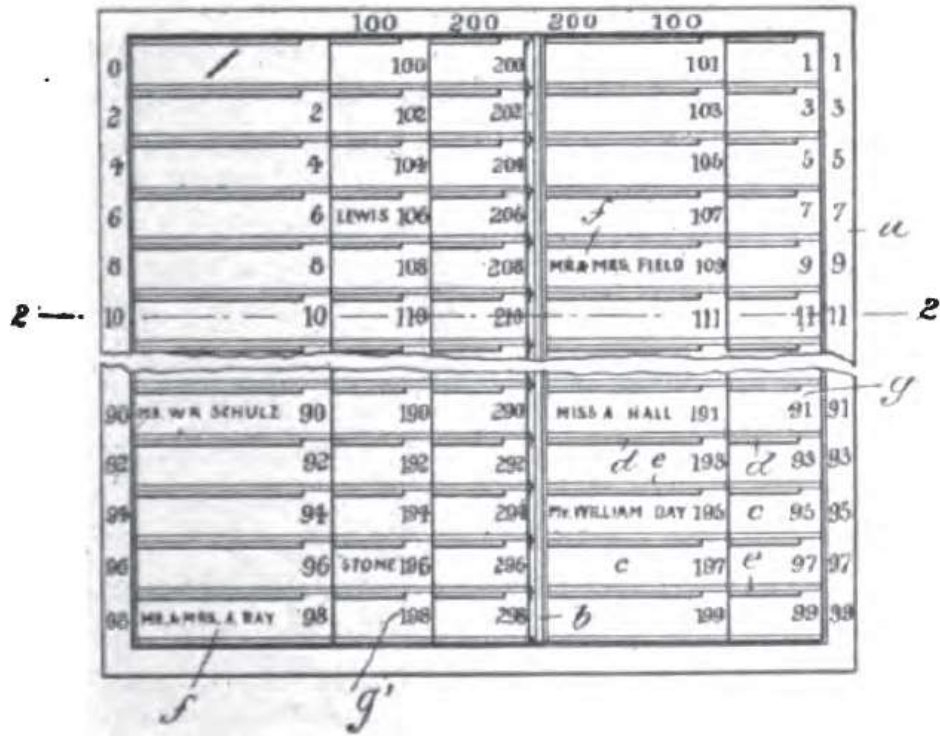 100 200 200 100
0 100 200 101 1 1
2 2 102 202 103 3 3
4 4 104 204 105 5 5
6 6 LEWIS 106 206 f 107 7 7 a
8 8 108 208 MR. & MRS. FIELD 109 9 9
2 10 10 110 210 111 11 11 2
g
90 MR. W R SCHULZ 90 190 290 MISS A HALL 191 91 91
92 92 192 292 d e 193 d 93 93
94 94 194 294 Mr. WILLIAM DAY 195 c 95 95
96 96 STONE 196 296 c 197 e' 97 97
98 MR. & MRS. A. DAY 98 198 298 b 199 99 99
f g'